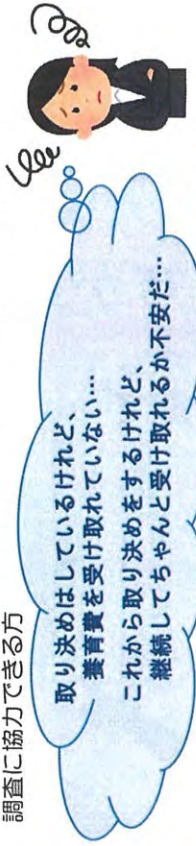 調査に協力できる方
取り決めはしているけれど、
養育費を受け取れていない…
これから取り決めをするけれど、
継続してちゃんと受け取れるか不安だ…